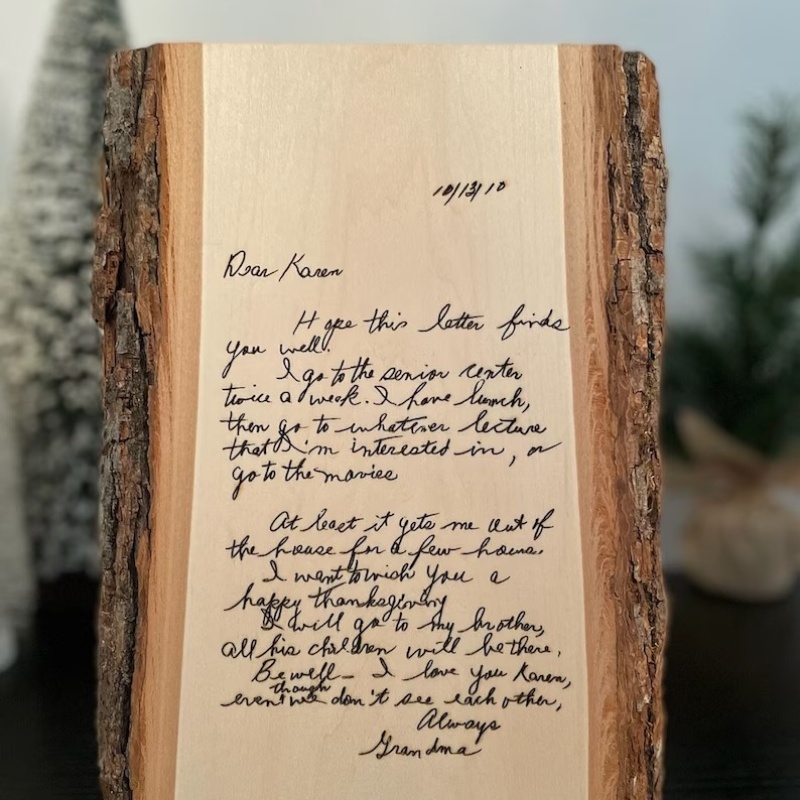 10/13/10
Dear Karen
Hope this letter finds
you well.
I go to the senior center
twice a week. I have lunch,
then go to whatever lecture
that I'm interested in, or
go to the movies
At least it gets me out of
the house for a few hours.
I want to wish you a
happy thanksgiving
I will go to my brother,
all his children will be there.
Be well - I love you Karen,
even though we don't see each other,
Always
Grandma